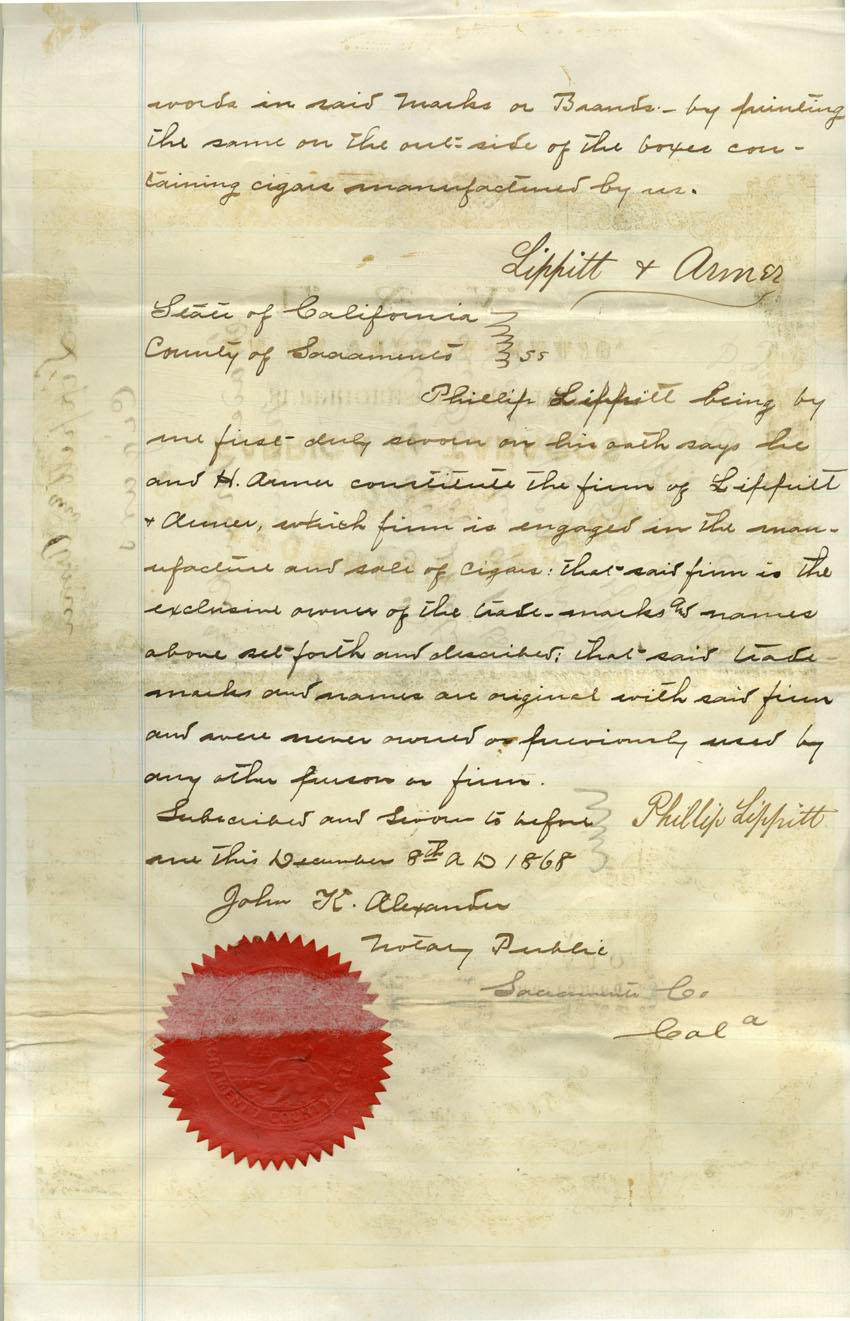 words in said Marks or Brands - by printing
the same on the out-side of the boxes con-
taining cigars manufactured by us.
Lippitt & Armer
State of California
County of Sacramento } ss
Phillip Lippitt being by
me first duly sworn on his oath says he
and H. Armer constitute the firm of Lippitt
& Armer, which firm is engaged in the man-
ufacture and sale of cigars: that said firm is the
exclusive owner of the trade-marks and names
above set forth and described; that said trade-
marks and names are original with said firm
and were never owned or previously used by
any other person or firm.
Subscribed and sworn to before
me this December 8th A D 1868
Phillip Lippitt
John K. Alexander
Notary Public
Sacramento Co.
Cala
SACRAMENTO COUNTY, CAL